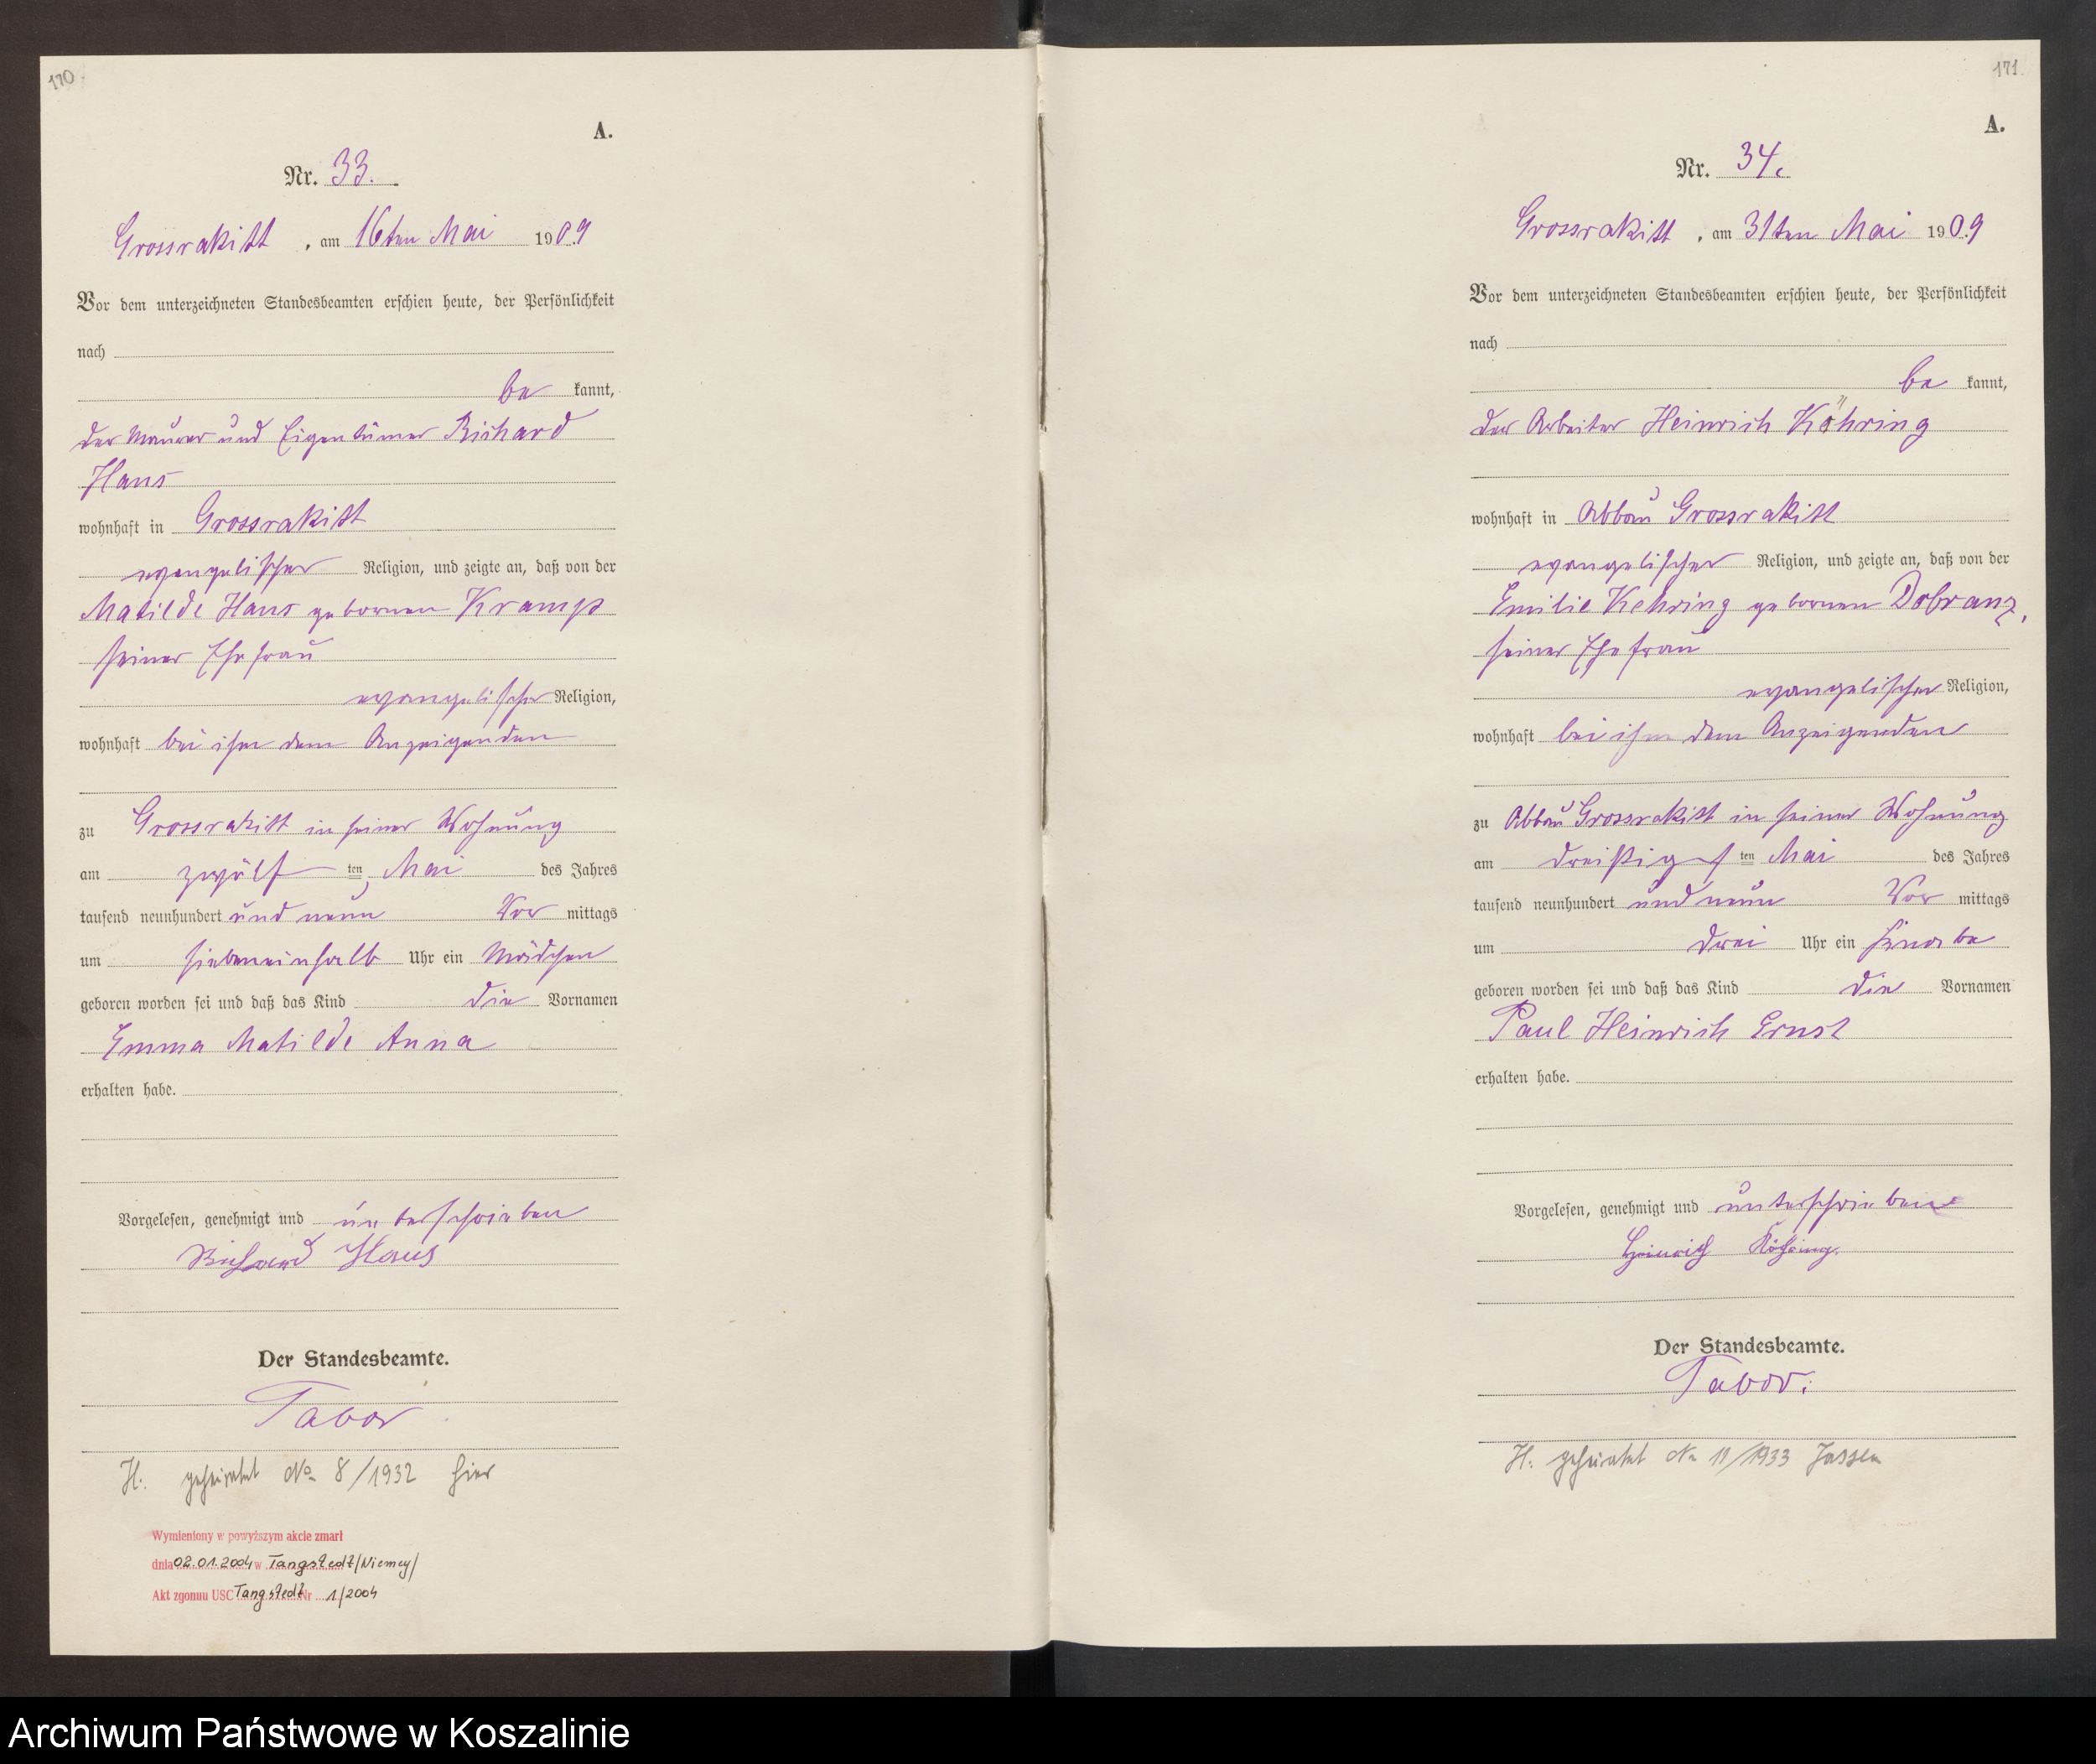 170
A.
Nr. 33.
Grossrakitt, am 16ten Mai 1909
Vor dem unterzeichneten Standesbeamten erschien heute, der Persönlichkeit
nach
be kannt,
der Maurer und Eigentümer Richard
Haus
wohnhaft in Grossrakitt
evangelischer Religion, und zeigte an, daß von der
Matilde Haus gebornen Kramp
seiner Ehefrau
evangelischer Religion,
wohnhaft bei ihm dem Anzeigenden
zu Grossrakitt in seiner Wohnung
am zwölf ten Mai des Jahres
tausend neunhundert und neun Vor mittags
um siebeneinhalb Uhr ein Mädchen
geboren worden sei und daß das Kind die Vornamen
Emma Matilde Anna
erhalten habe.
Vorgelesen, genehmigt und unterschrieben
Richard Haus
Der Standesbeamte.
Tabor
H. geheiratet No 8/1932 hier
Wymieniony w powyższym akcie zmarł
dnia 02.01.2004 w Tangstedt /Niemcy/
Akt zgonuu USC Tangstedt Nr 1/2004
171.
A.
Nr. 34.
Grossrakitt, am 31ten Mai 1909
Vor dem unterzeichneten Standesbeamten erschien heute, der Persönlichkeit
nach
be kannt,
der Arbeiter Heinrich Köhring
wohnhaft in Abbau Grossrakitt
evangelischer Religion, und zeigte an, daß von der
Emilie Kehring gebornen Dobranz,
seiner Ehefrau
evangelischer Religion,
wohnhaft bei ihm dem Anzeigenden
zu Abbau Grossrakitt in seiner Wohnung
am dreißigst ten Mai des Jahres
tausend neunhundert und neun Vor mittags
um drei Uhr ein Knabe
geboren worden sei und daß das Kind die Vornamen
Paul Heinrich Ernst
erhalten habe.
Vorgelesen, genehmigt und unterschrieben
Heinrich Köhring.
Der Standesbeamte.
Tabor.
H. geheiratet No 11/1933 Jassen
Archiwum Państwowe w Koszalinie